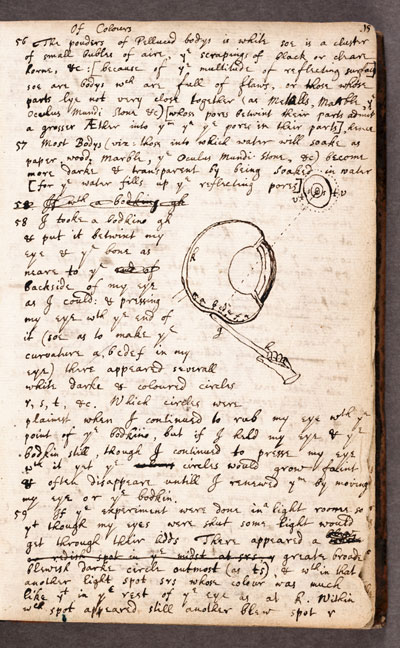 Of Colours
15
56 The pouders of Pellucid bodys is white soe is a cluster
of small bubles of aire, yᵉ scrapings of black or cleare
horne, &c: [because of yᵉ multitude of reflecting surfaces
soe are bodys wᶜʰ are full of flaws, or those whose
parts lye not very close together (as Metalls, Marble, yᵉ
Oculus Mundi Stone &c) [whose pores betwixt their parts admit
a grosser Æther into yᵐ yⁿ yᵉ pores in their parts], hence
57 Most Bodys (viz: those into which water will soake as
paper, wood, Marble, yᵉ Oculus Mundi Stone, &c) become
more darke & transparent by being soaked in water
[for yᵉ water fills up yᵉ reflecting pores]
58 If wᵗʰ a bodking gh
58 I tooke a bodkine gh
& put it betwixt my
eye & yᵉ bone as
neare to yᵉ end of
backside of my eye
as I could: & pressing
my eye wᵗʰ yᵉ end of
it (soe as to make yᵉ
curvature a, bcdef in my
eye) there appeared severall
white darke & coloured circles
r, s, t, &c. Which circles were
plainest when I continued to rub my eye wᵗʰ yᵉ
point of yᵉ bodkine, but if I held my eye & yᵉ
bodkin still, though I continued to presse my eye
wᵗʰ it yet yᵉ circles would grow faint
& often disappeare untill I renewed yᵐ by moving
my eye or yᵉ bodkin.
59 If yᵉ experiment were done in a light roome so
yᵗ though my eyes were shut some light would
get through their lidds There appeared a
greate broade
blewish darke circle outmost (as ts) & wᵗʰin that
another light spot srs whose colour was much
like yᵗ in yᵉ rest of yᵉ eye as at k. Within
wᶜʰ spot appeared still another blew spot r